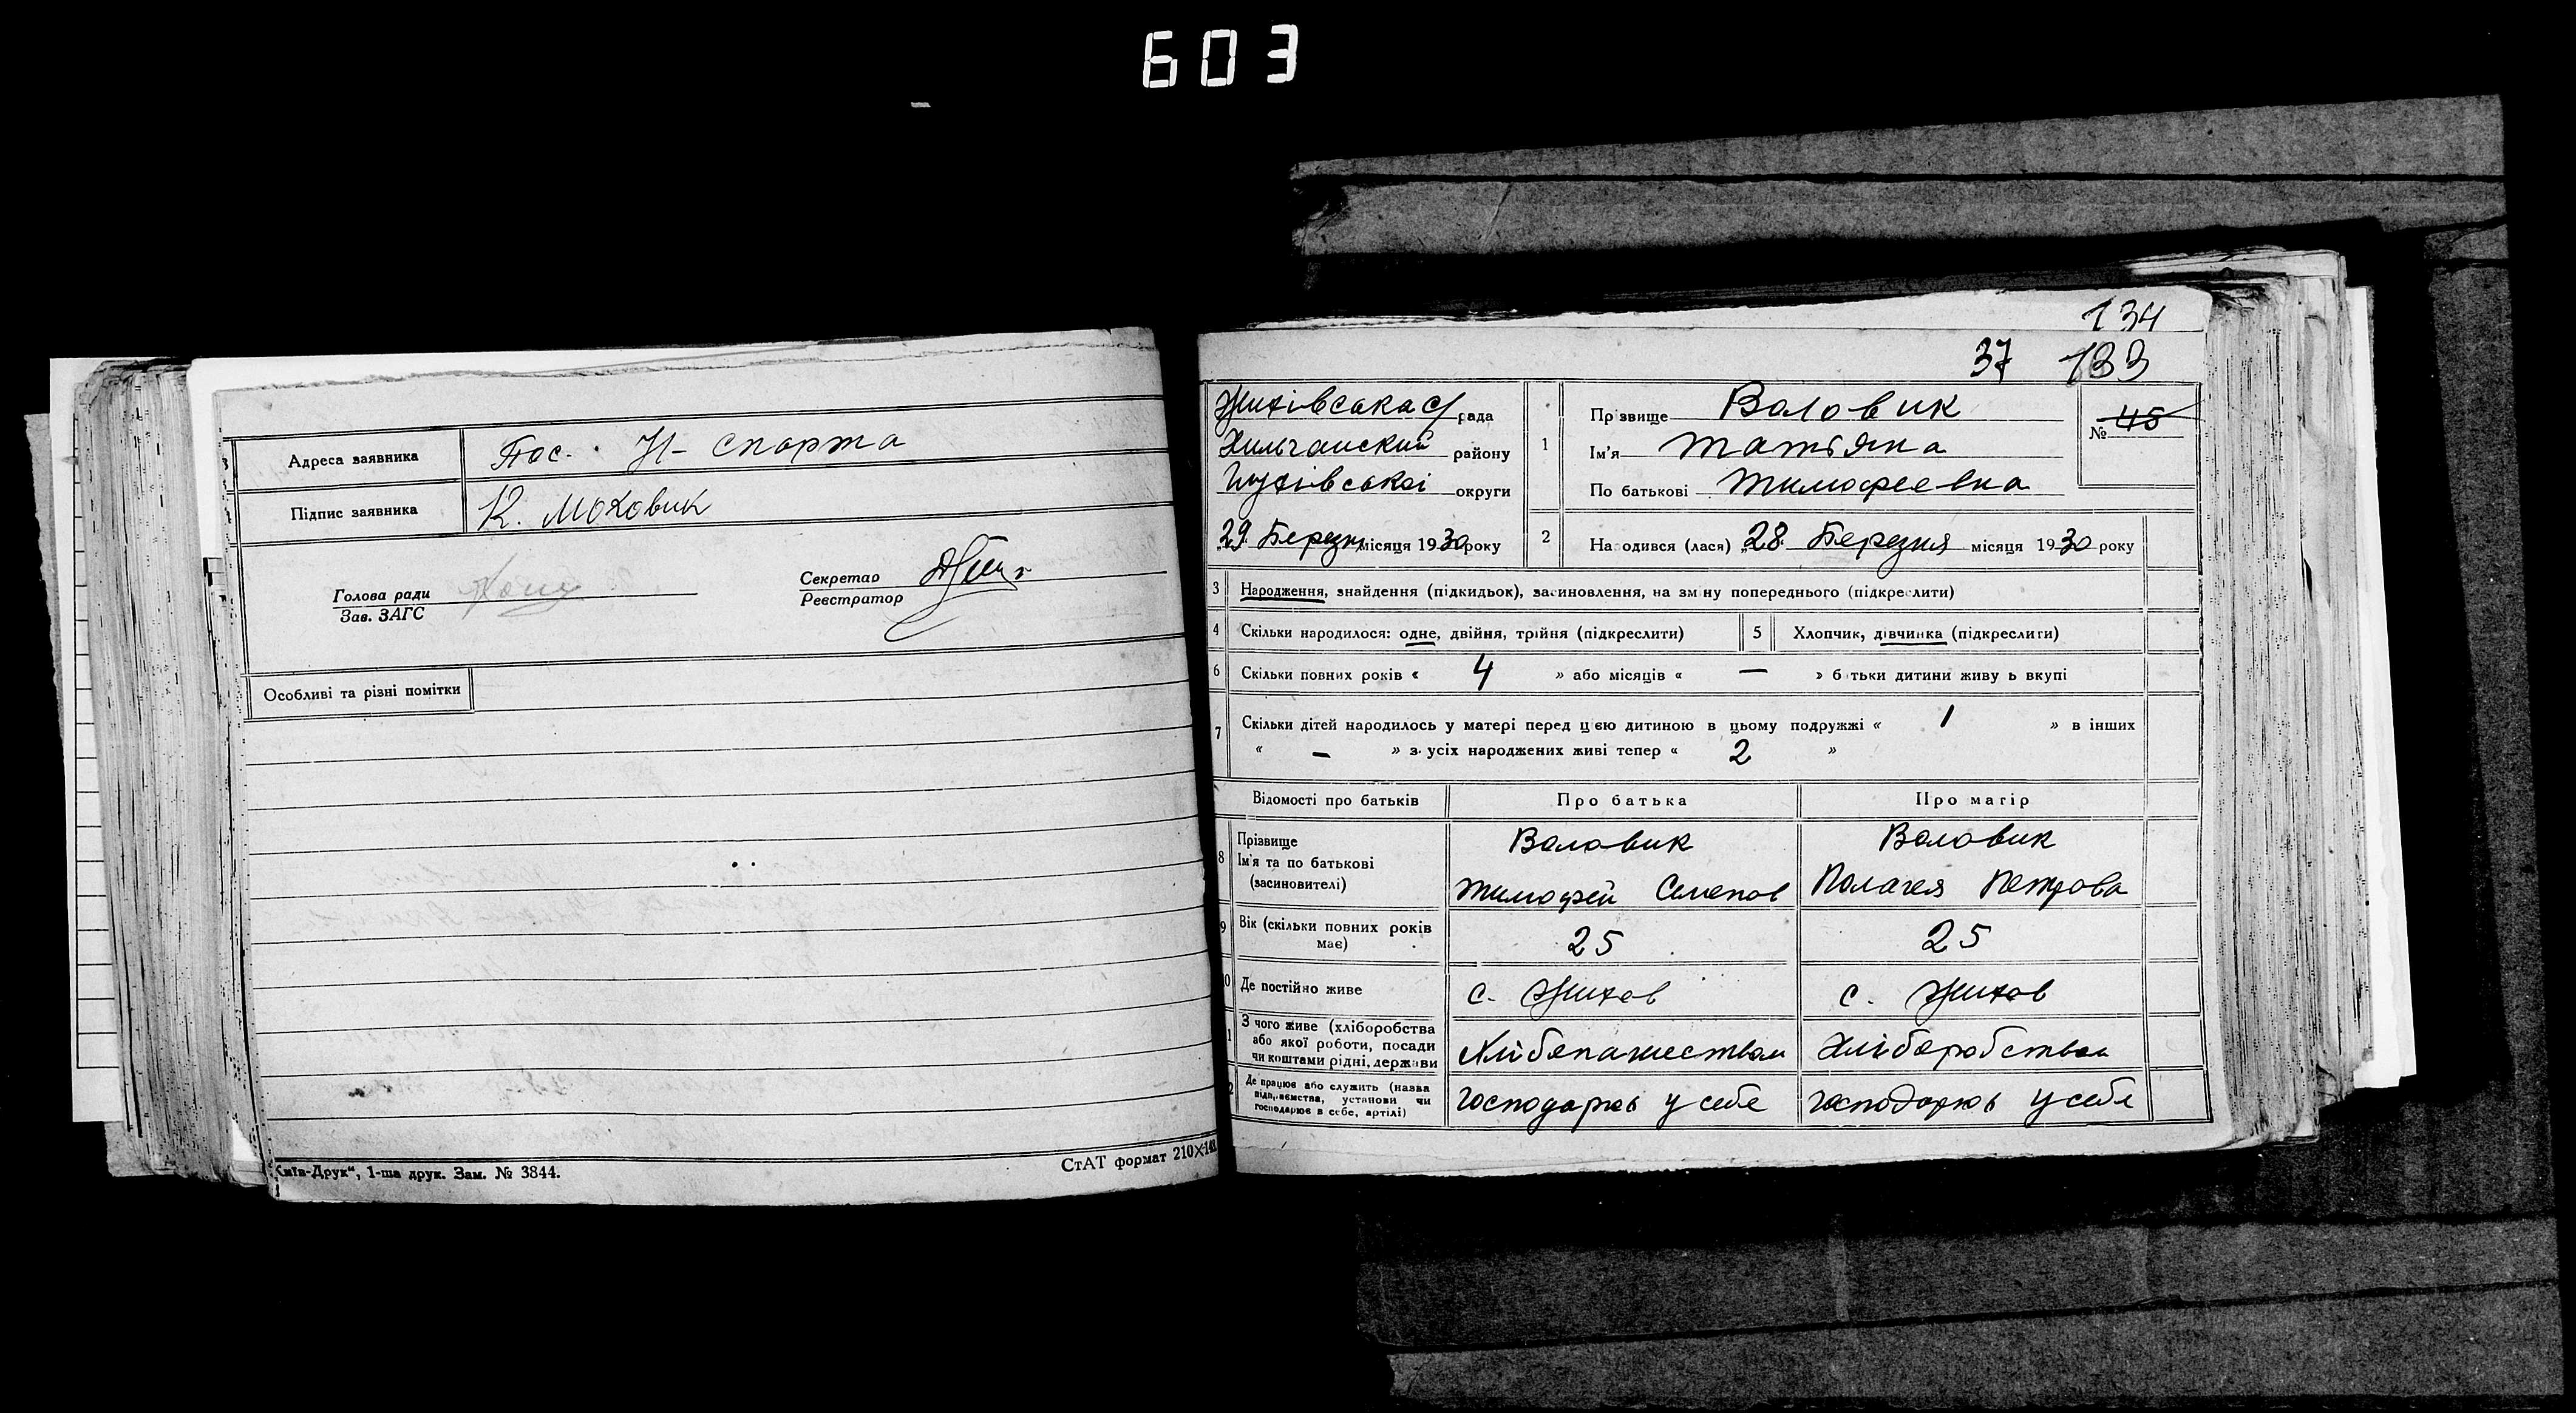 603
Адреса заявника Пос. Н- Спарта
Підпис заявника К. Моховик
Голова ради
Зав. ЗАГС
Секретар
Реєстратор
Особливі та різні помітки
Київ-Друк“, 1-ша друк. Зам. № 3844.
СтАТ формат 210×148
134
37 133
Жихівська с/рада
Хильчанский району
Глухівської округи
„29„ Березня місяця 1930 року
1 Прізвище Воловик
Ім'я Татьяна
По батькові Тимофеевна
№ 45
2 Народився (лася) „28„ Березня місяця 1930 року
3 Народження, знайдення (підкидьок), засиновлення, на зміну попереднього (підкреслити)
4 Скільки народилося: одне, двійня, трійня (підкреслити) 5 Хлопчик, дівчинка (підкреслити)
6 Скільки повних років « 4 » або місяців « — » батьки дитини живуть вкупі
7 Скільки дітей народилось у матері перед цією дитиною в цьому подружжі « 1 » в інших
« — » з усіх народжених живі тепер « 2 »
Відомості про батьків Про батька Про матір
8 Прізвище
Ім'я та по батькові
(засиновителі)
Воловик
Тимофей Семенов
Воловик
Полагея Петрова
9 Вік (скільки повних років має) 25 25
10 Де постійно живе с. Жихов с. Жихов
11 З чого живе (хліборобства
або якої роботи, посади
чи коштами рідні, держави
Хлібопашеством Хліборобством
12 Де працює або служить (назва
підприємства, установи чи
господарює в себе, артілі)
Господарює у себе господарює у себе